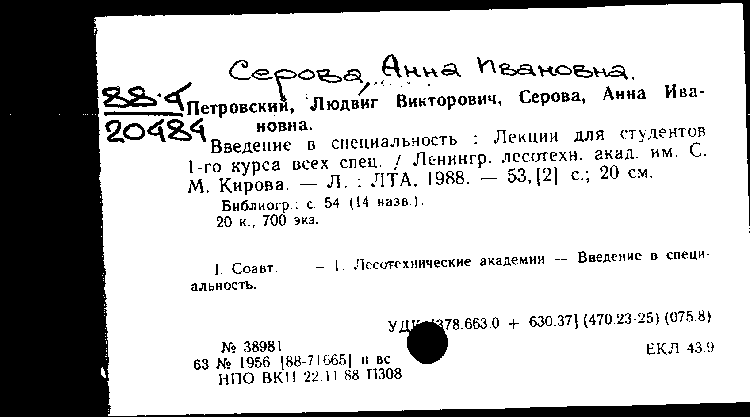 Серова, Анна Ивановна.
88-4
20484
Петровский, Людвиг Викторович, Серова, Анна Ива-
новна.
Введение в специальность : Лекции для студентов
1-го курса всех спец. / Ленингр. лесотехн. акад. им. С.
М. Кирова. — Л. : ЛТА, 1988. — 53, [2] с.; 20 см.
Библиогр.: с. 54 (14 назв.).
20 к., 700 экз.
1. Соавт. — 1. Лесотехнические академии — Введение в специ-
альность.
УДК [378.663.0 + 630.37] (470.23-25) (075.8)
№ 38981
63 № 1956 [88-71665] п вс
ЕКЛ 43.9
НПО ВКП 22.11 88 П308